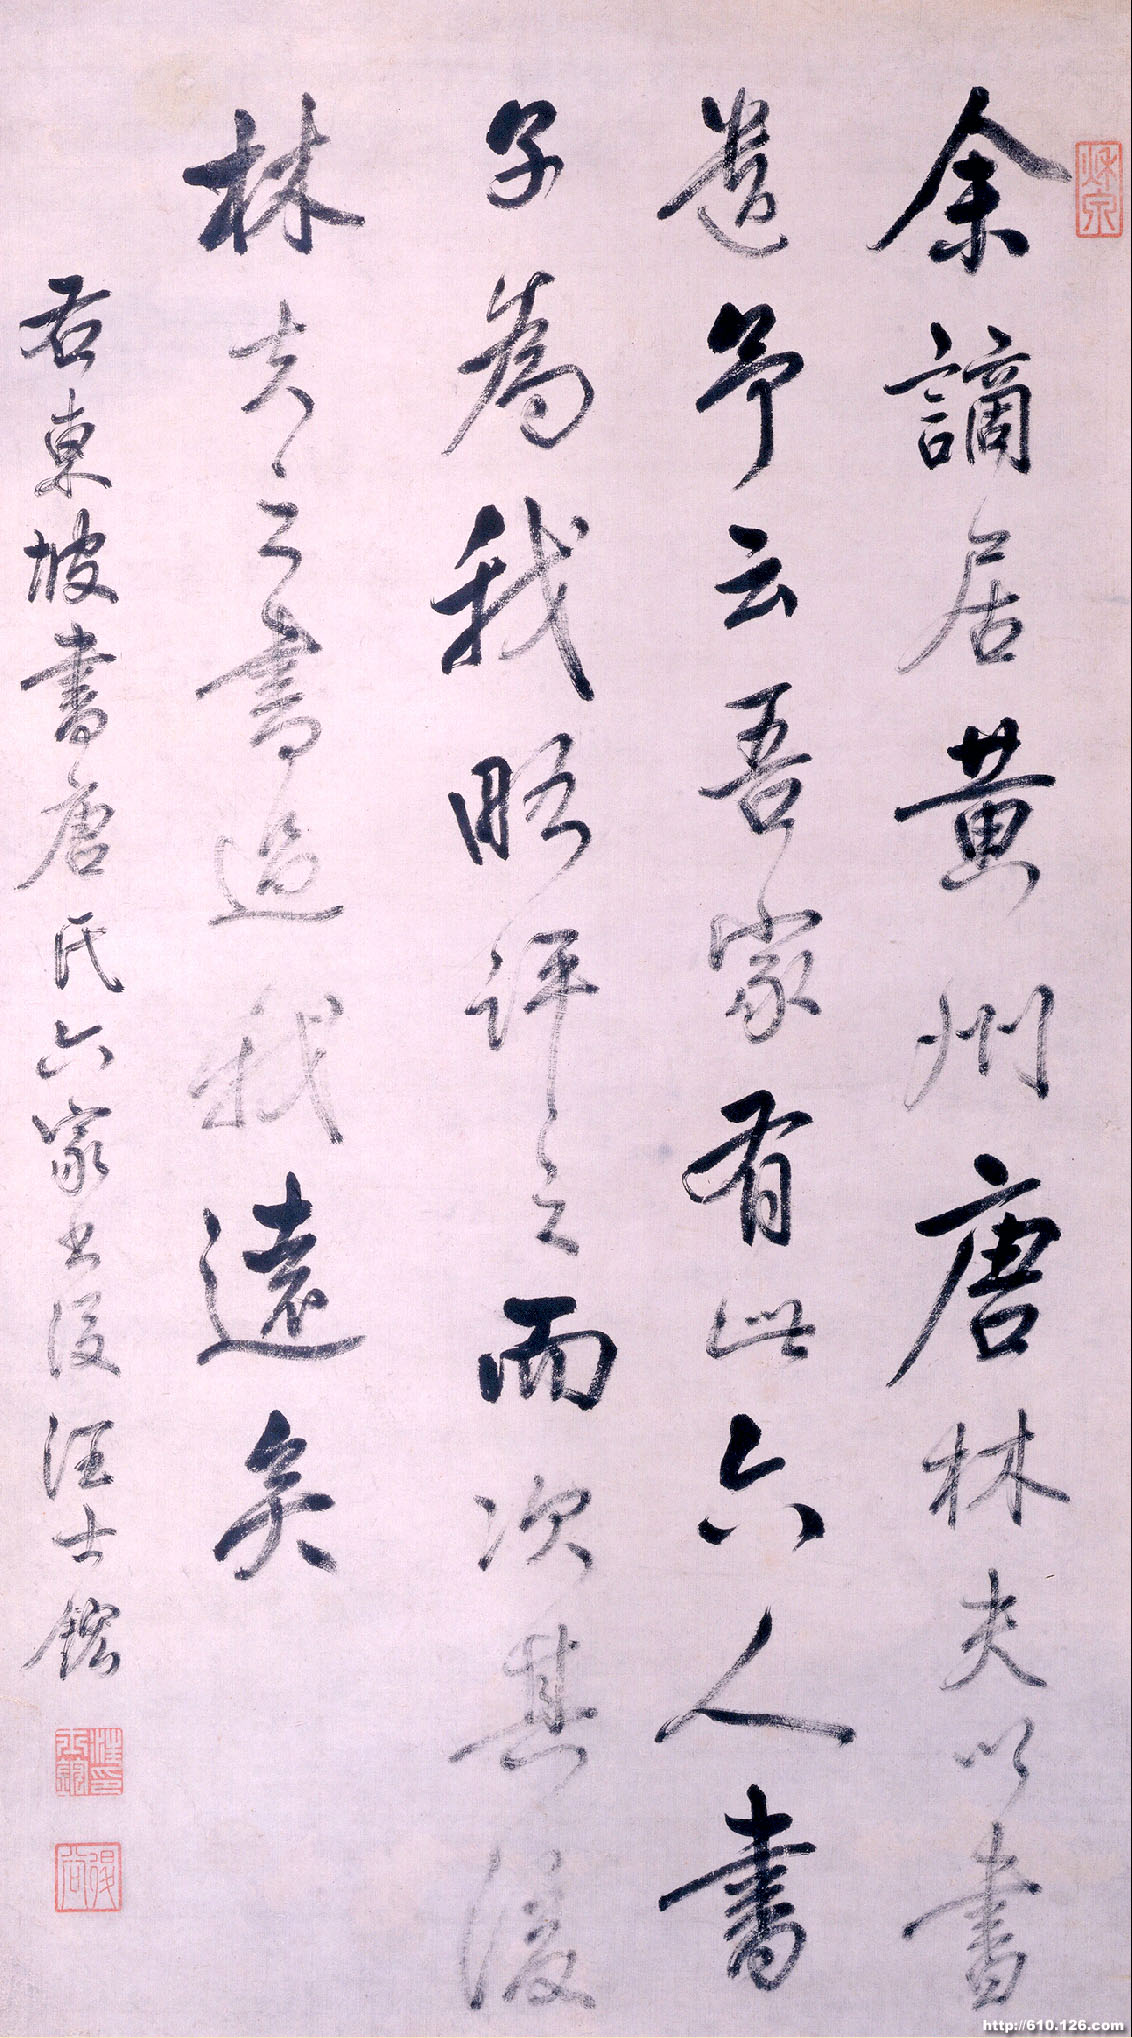 余謫居黄州唐林夫以書
遺予云吾家有此六人書
子為我略評之而次其後
林夫之書過我遠矣
右東坡書唐氏六家書後汪士鋐
http://610.126.com